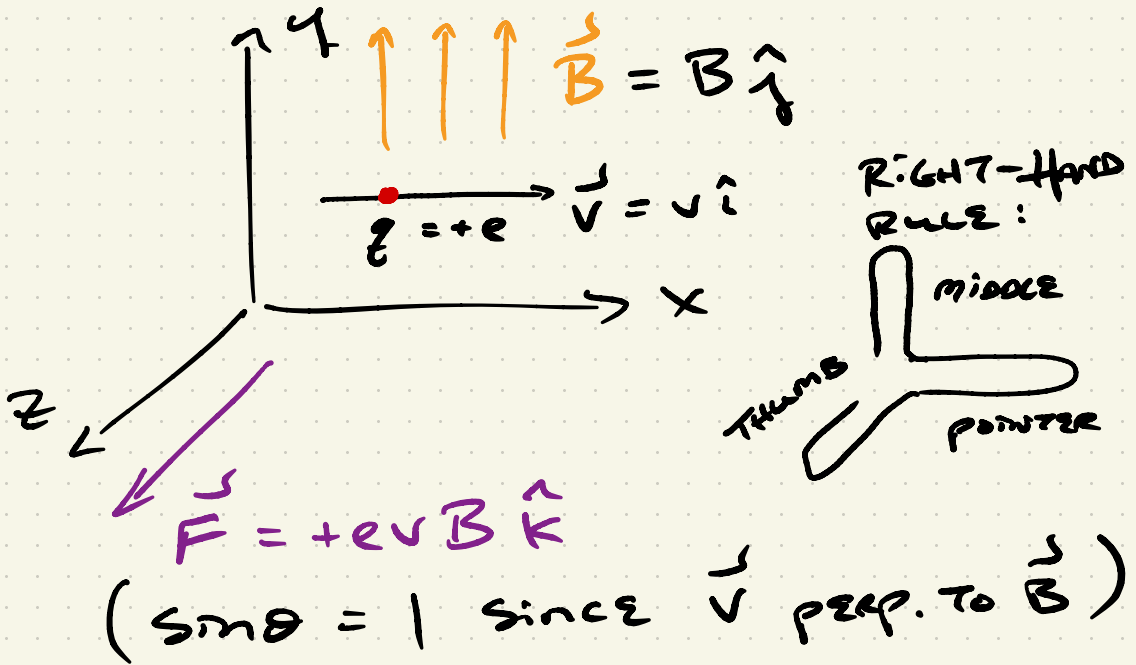 Y
B⃗ = B ĵ
q = +e
v⃗ = v î
X
Z
RIGHT-HAND
RULE:
MIDDLE
THUMB
POINTER
F⃗ = +evB k̂
(sinθ = 1 since v⃗ perp. to B⃗)